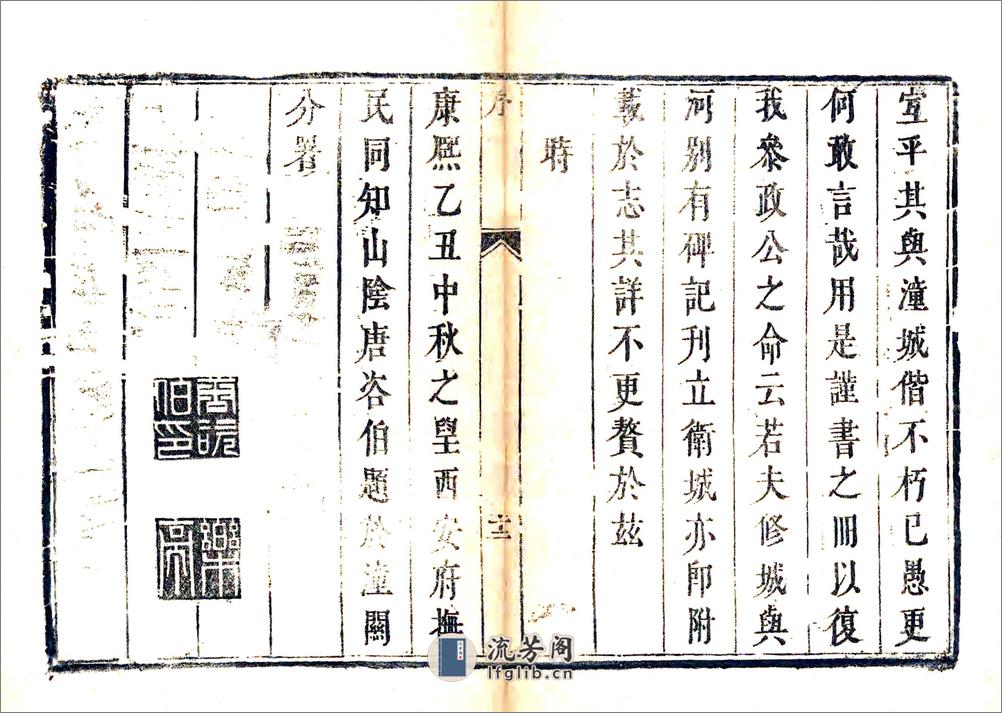 宜平其與潼城偕不朽已愚更
何敢言哉用是謹書之冊以復
我叅政公之命云若夫修城與
河别有碑記刊立衛城亦即附
載於志其詳不更贅於茲
時
序
十二
康熙乙丑中秋之望西安府撫
民同知山陰唐咨伯題於潼關
分署
流芳阁
lfglib.cn